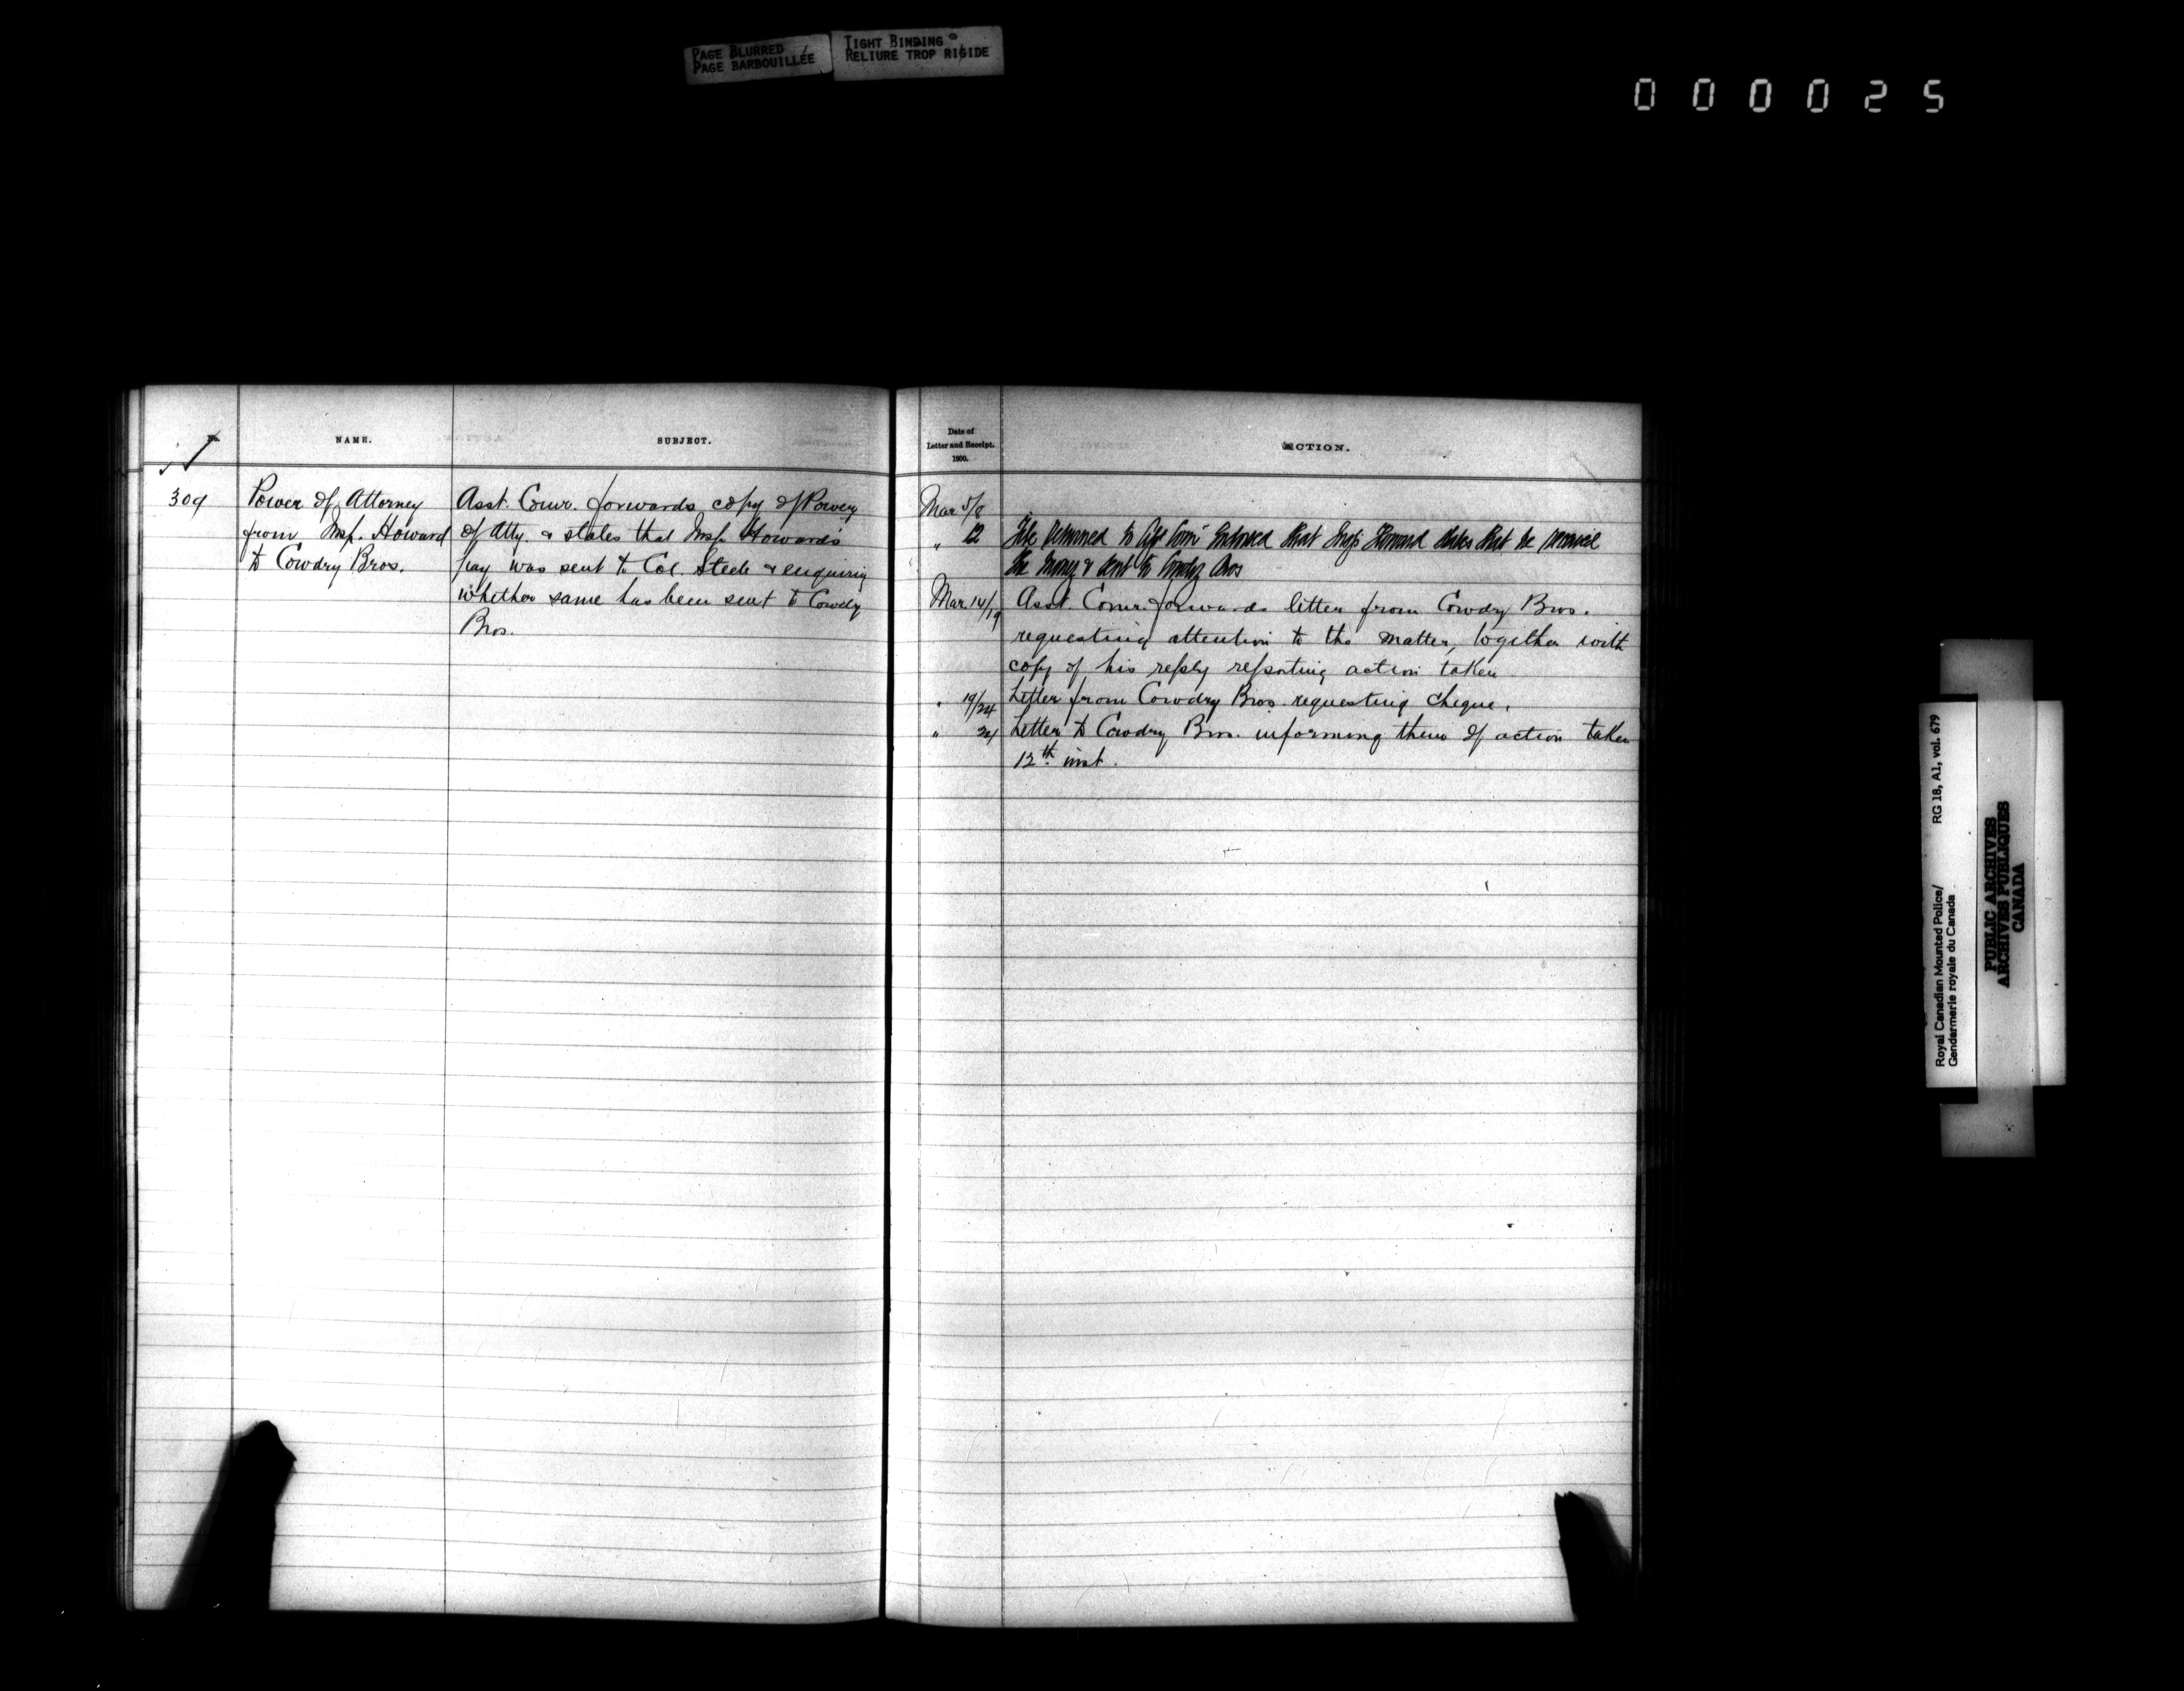 PAGE BLURRED
PAGE BARBOUILLÉE
TIGHT BINDING
RELIURE TROP RIGIDE
000025
No.
NAME.
SUBJECT.
309
Power of Attorney
from Insp. Howard
to Cowdry Bros.
Asst. Comr. forwards copy of Power
of Atty. & states that Insp. Howard's
pay was sent to Col. Steele & enquiring
whether same has been sent to Cowdry
Bros.
Date of
Letter and Receipt.
1900.
ACTION.
Mar 5/8
" 12 File returned to Comr endorsed that Insp Howard states that he received
the money & sent to Cowdry Bros
Mar. 14/19 Asst. Comr. forwards letter from Cowdry Bros.
requesting attention to the matter, together with
copy of his reply reporting action taken.
" 19/24 Letter from Cowdry Bros. requesting cheque.
" 24 Letter to Cowdry Bros. informing them of action taken
12th inst.
Royal Canadian Mounted Police/
Gendarmerie royale du Canada
RG 18, A1, vol. 679
PUBLIC ARCHIVES
ARCHIVES PUBLIQUES
CANADA